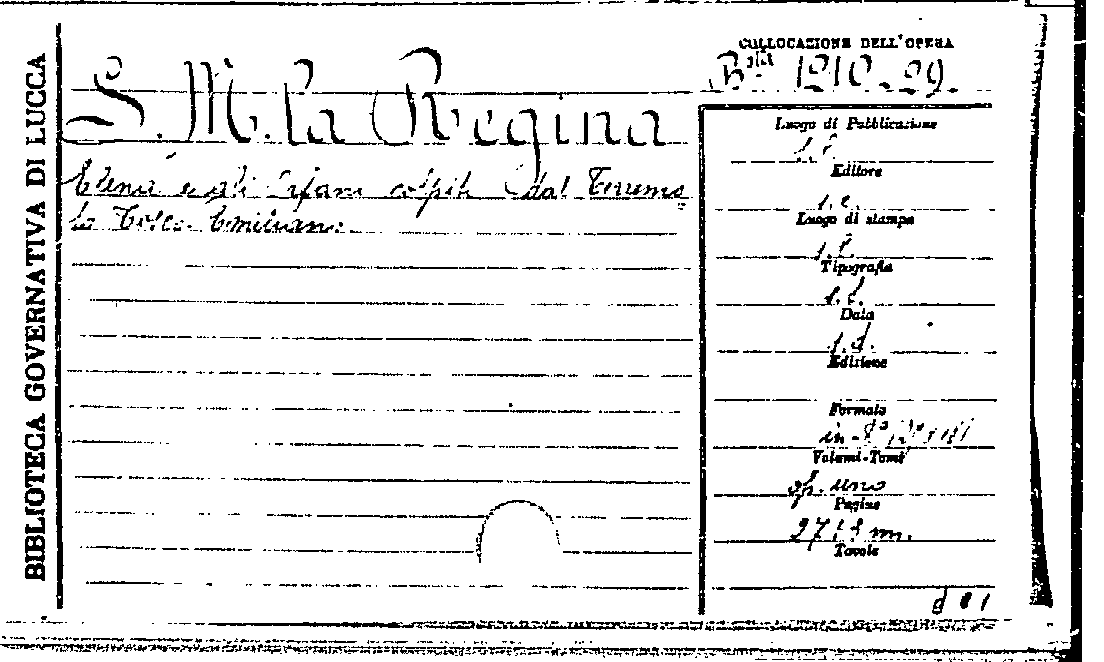 BIBLIOTECA GOVERNATIVA DI LUCCA
S. M. la Regina
Elena e gli Orfani colpiti dal Terremo
to Tosco Emiliano.
COLLOCAZIONE DELL'OPERA
1210.29.
Luogo di Pubblicazione
s. l.
Editore
s. e.
Luogo di stampa
s. l.
Tipografia
s. t.
Data
s. d.
Edizione
Formato
in-8°
Volumi-Tomi
op. uno
Pagine
Tavole